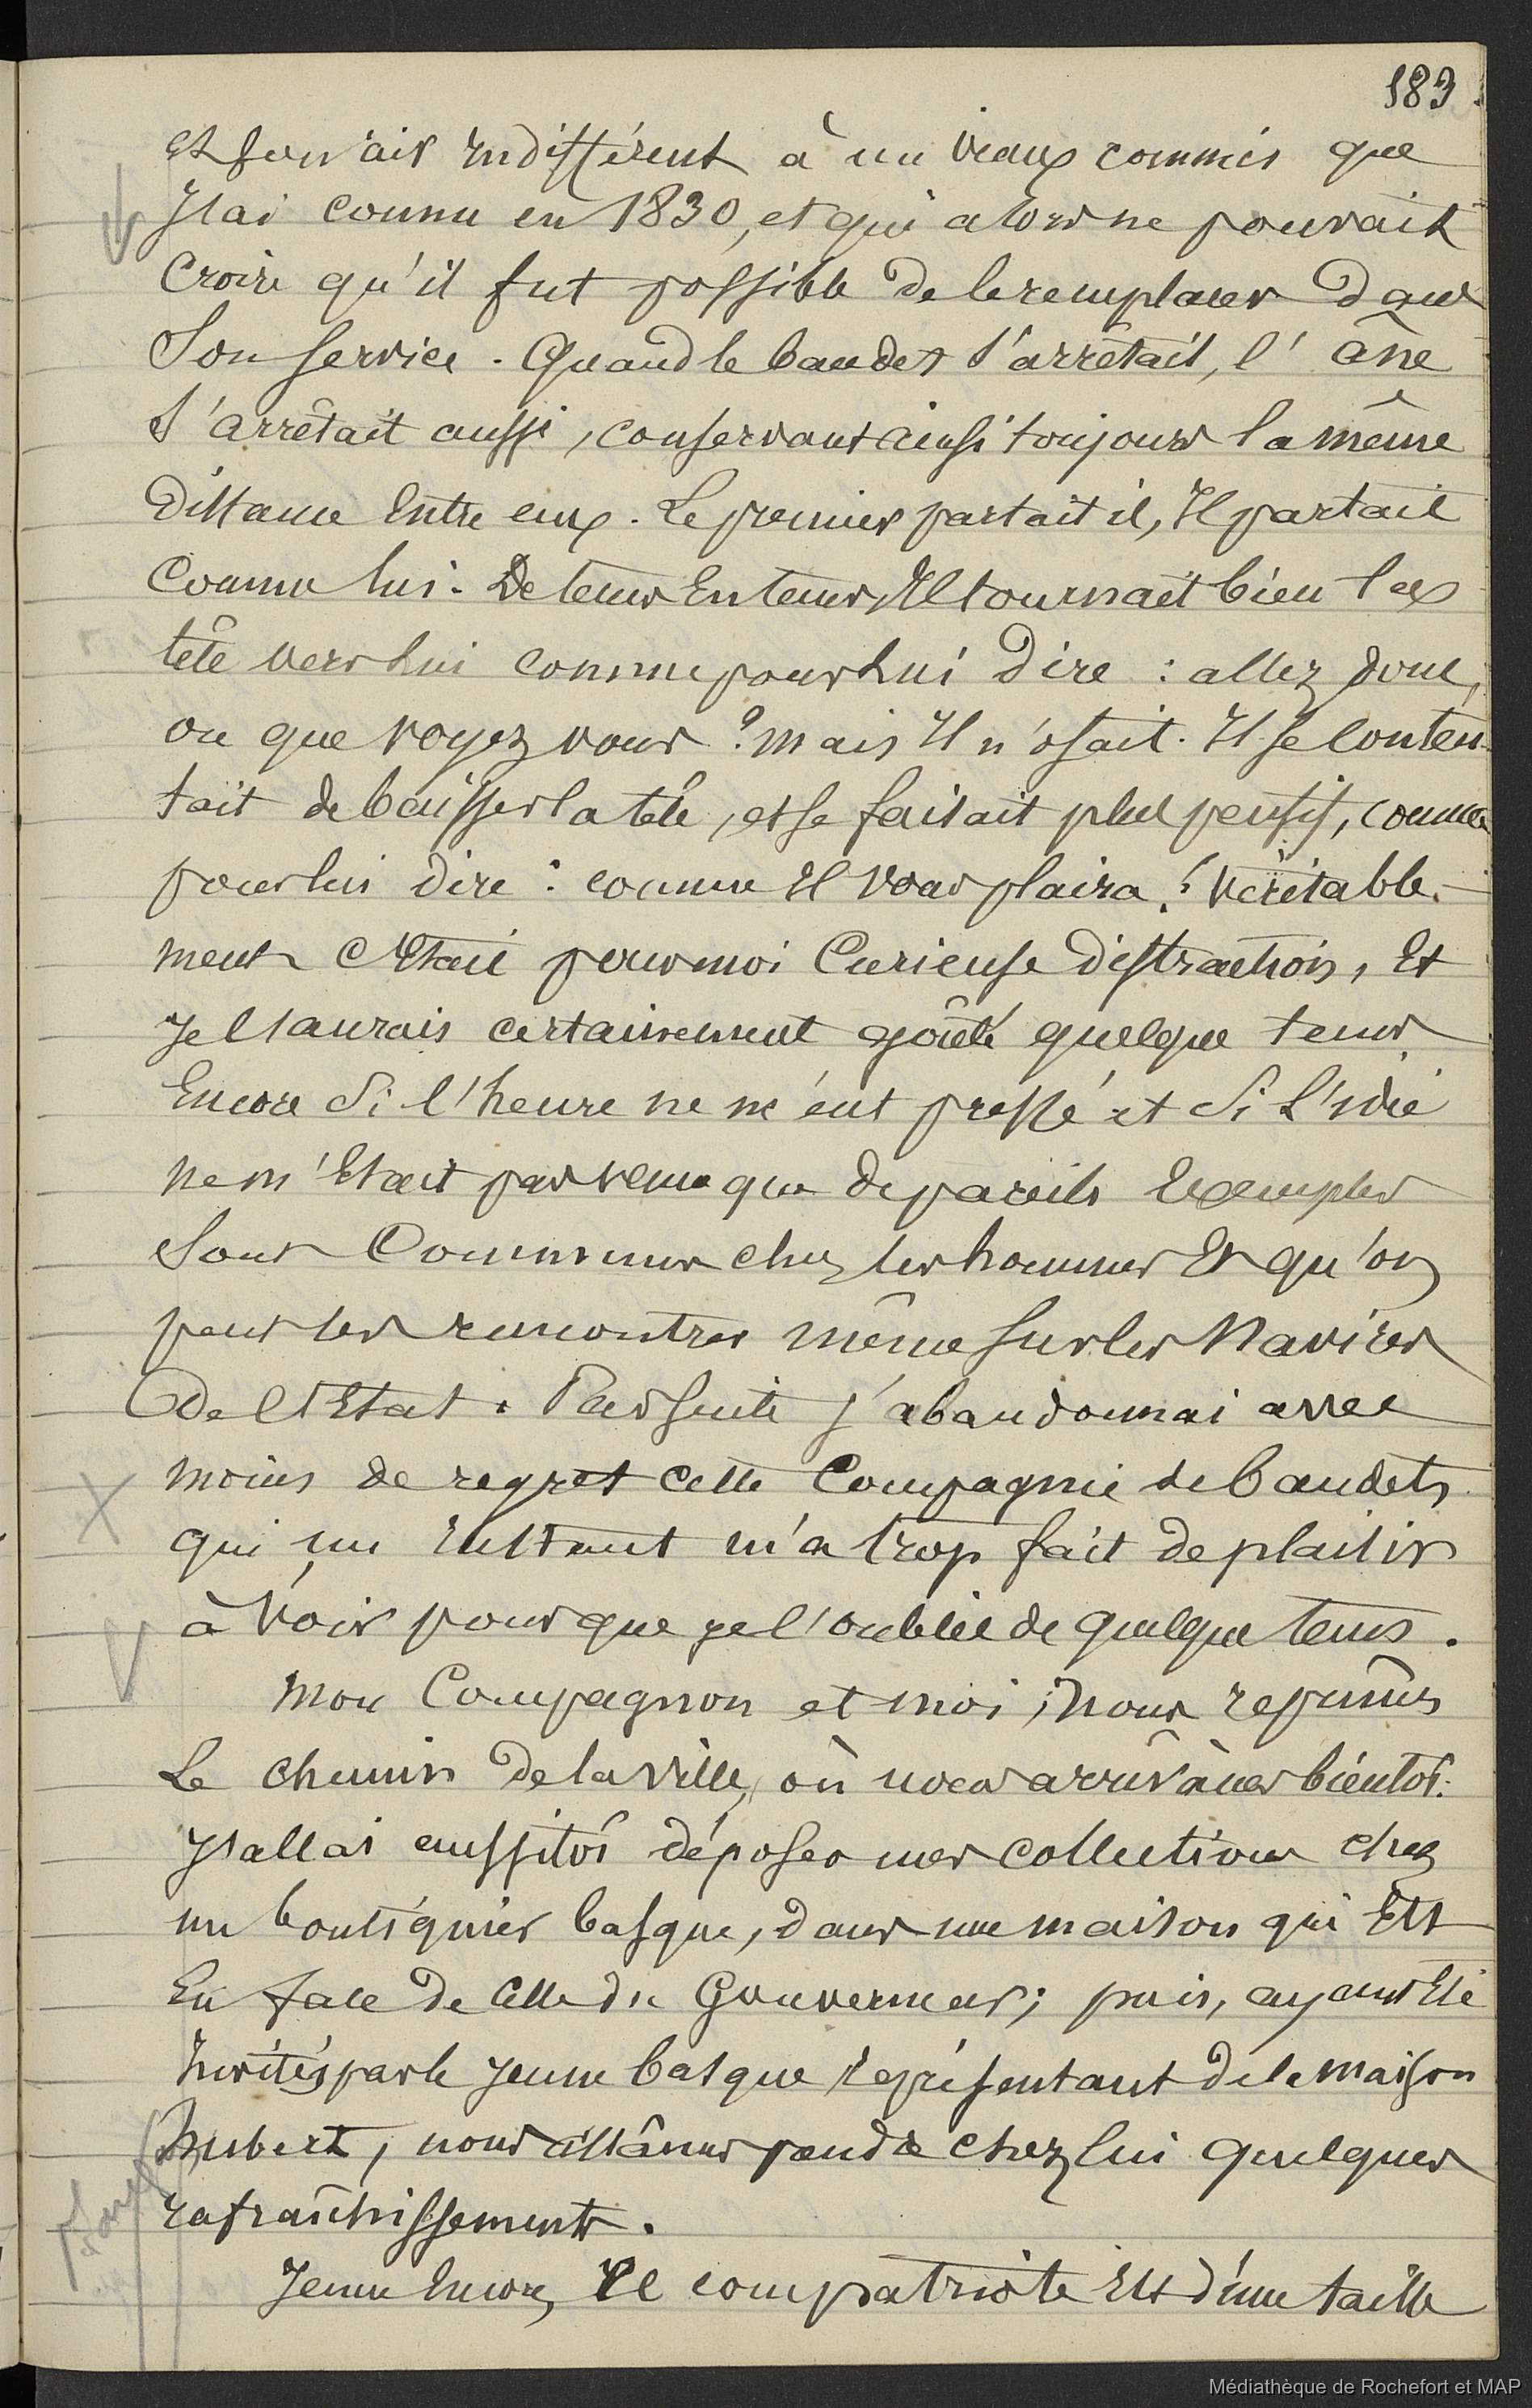 183.
et son air indifférent à un vieux commis que
j'ai connu en 1830, et qui alors ne pouvait
croire qu'il fut possible de le remplacer dans
son service. Quand le baudet s'arrêtait, l'âne
s'arrêtait aussi, conservant ainsi toujours la même
distance entre eux. Le premier partait il, Il partait
comme lui. De tems en tems, Il tournait bien la
tête vers lui comme pour lui dire : allez donc,
ou que voyez vous ? mais Il n'osait. Il se conten-
tait de baisser la tête, et se faisait plus pensif, comme
pour lui dire : comme Il vous plaira ! véritable-
ment c'était pour moi curieuse distraction, Et
je l'aurais certainement goûté quelque tems
Encore si l'heure ne m'eut pressé et si l'idée
ne m'était pas venue que de pareils Exemples
sont communs chez les hommes Et qu'on
peut les rencontrer même sur les Navires
de l'Etat. Par suite j'abandonnai avec
moins de regret cette Compagnie de baudets
qui un Instant m'a trop fait de plaisir
à voir pour que je l'oublie de quelque tems.
Mon Compagnon et moi, nous reprîmes
Le chemin de la ville, où nous arrivâmes bientôt.
J'allai aussitôt déposer mes collections chez
un boutiquier basque, dans une maison qui Est
En face de celle du Gouverneur; puis, ayant Eté
Invités par le jeune basque représentant de la maison
Hubert, nous allâmes prendre chez lui quelques
rafraîchissements.
Jeune Encore, ce compatriote Est d'une taille
Médiathèque de Rochefort et MAP